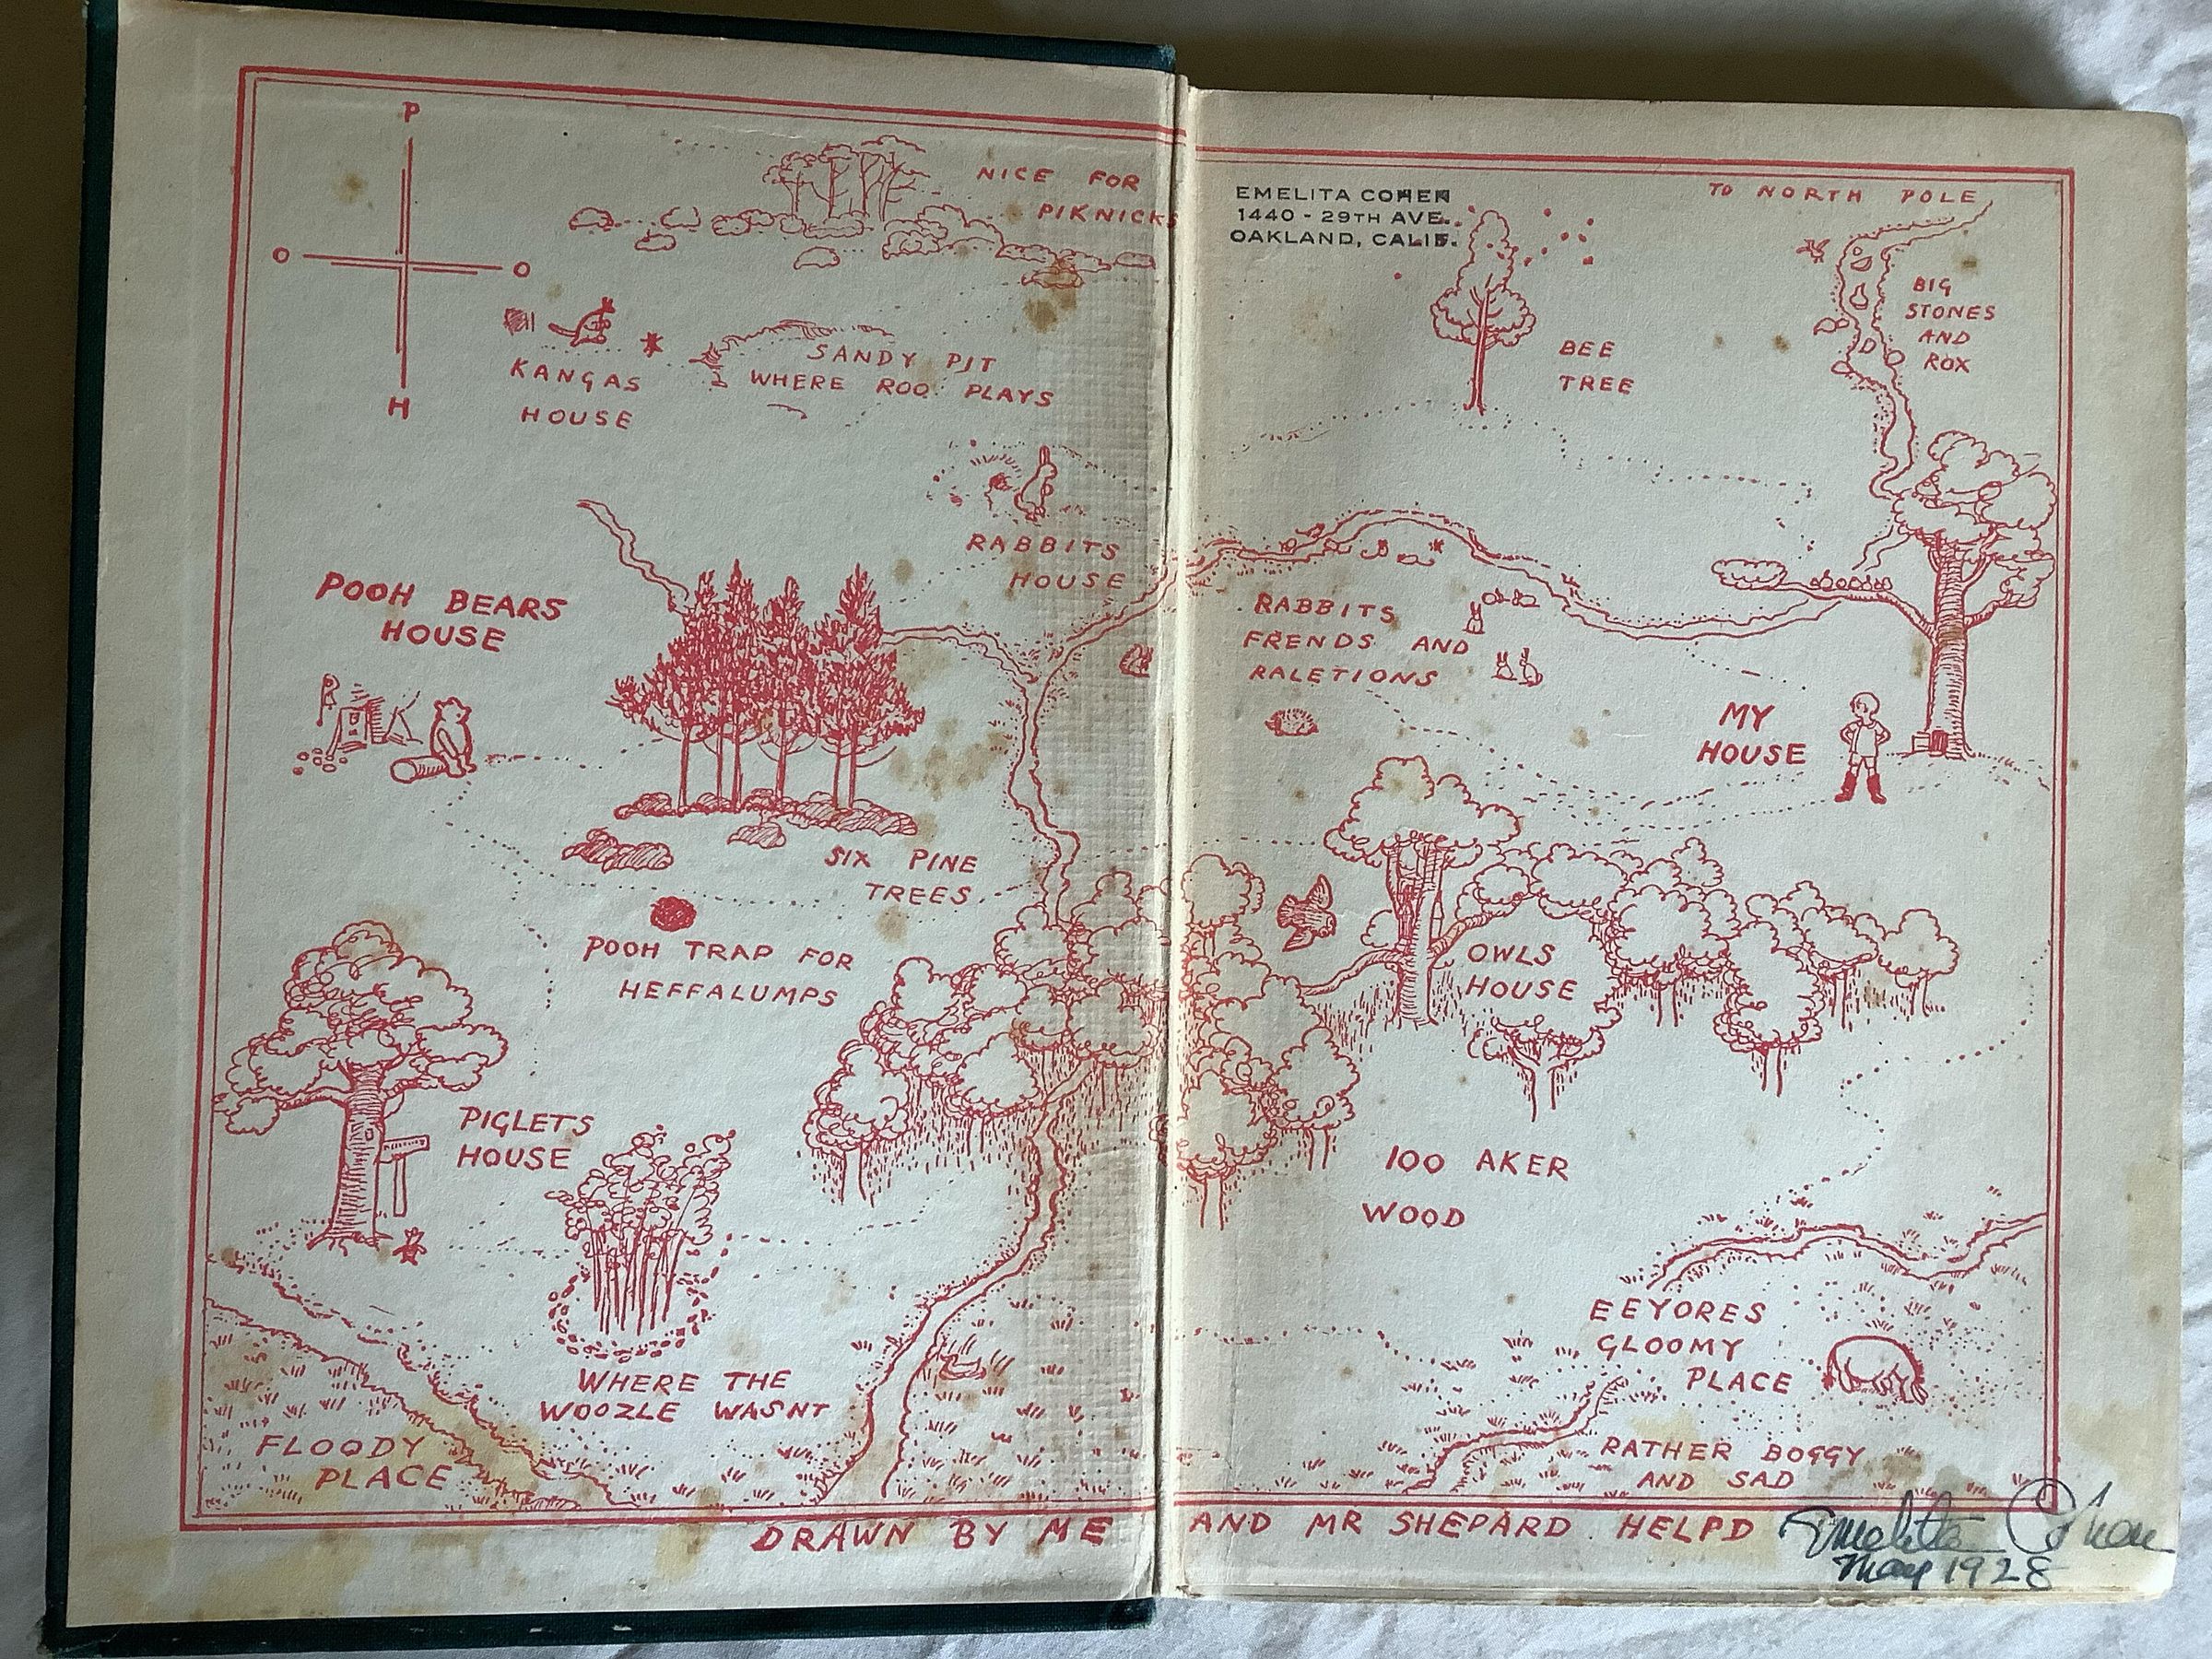 P
O
O
H
NICE FOR
PIKNICKS
EMELITA COHEN
1440 - 29TH AVE.
OAKLAND, CALIF.
TO NORTH POLE
BIG
STONES
AND
ROX
BEE
TREE
KANGAS
HOUSE
SANDY PIT
WHERE ROO PLAYS
RABBITS
HOUSE
POOH BEARS
HOUSE
RABBITS
FRENDS AND
RALETIONS
MY
HOUSE
SIX PINE
TREES
POOH TRAP FOR
HEFFALUMPS
OWLS
HOUSE
PIGLETS
HOUSE
100 AKER
WOOD
WHERE THE
WOOZLE WASNT
EEYORES
GLOOMY
PLACE
FLOODY
PLACE
RATHER BOGGY
AND SAD
DRAWN BY ME AND MR SHEPARD HELPD
Emelita Cohen
May 1928